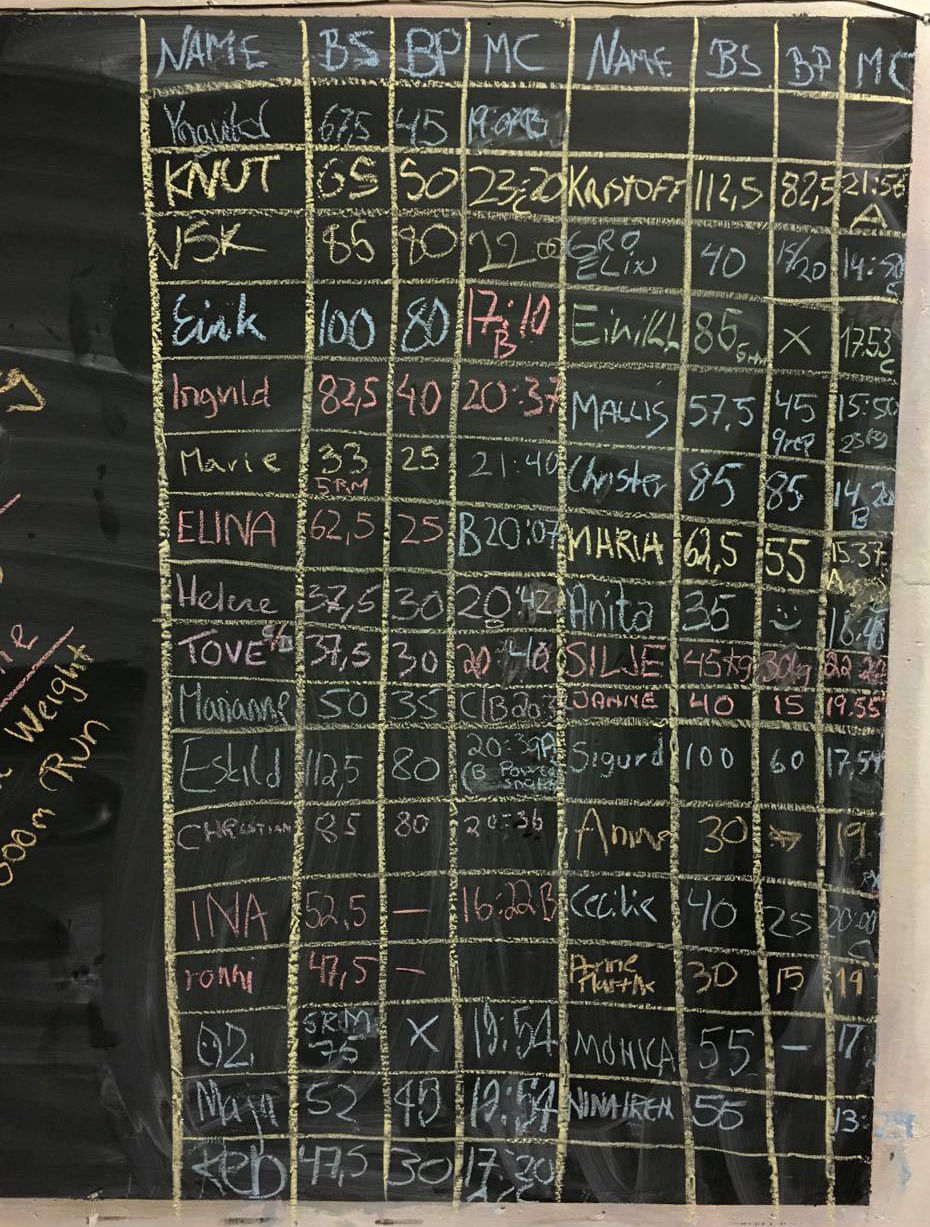 NAME BS BP MC NAME BS BP MC
67,5 45
KNUT 65 50 23:20 KRISTOFF 112,5 82,5 21:56
A
85 80 22 GRO 40 15/20 14:50
C
Eirik 100 80 17:10 85 X 17.53
B C
Ingvild 82,5 40 20:37 MALLIS 57,5 45 15:50
9rep
Marie 33 25 21:40 Christer 85 85 14,20
5RM B
ELINA 62,5 25 B20:07 MARIA 62,5 55 15.37
A
Helene 37,5 30 20:42 Anita 35 :)
TOVE 37,5 30 20 40 SILJE 45kg 30kg 22 22
Marianne 50 35 JANNE 40 15 19.55
Eskild 112,5 80 20:39A Sigurd 100 60 17.54
(B Power
CHRISTIAN 85 80 20:36 Anna 30 19
INA 52,5 — 16:22B Cecilie 40 25 20:00
C
ronni 47,5 — Anne 30 15 14
Marthe
5RM X 19:54 MONICA 55 — 17
75
52 40 19:54 NINA IREN 55 13:
47,5 30 17:20
Weight
Run